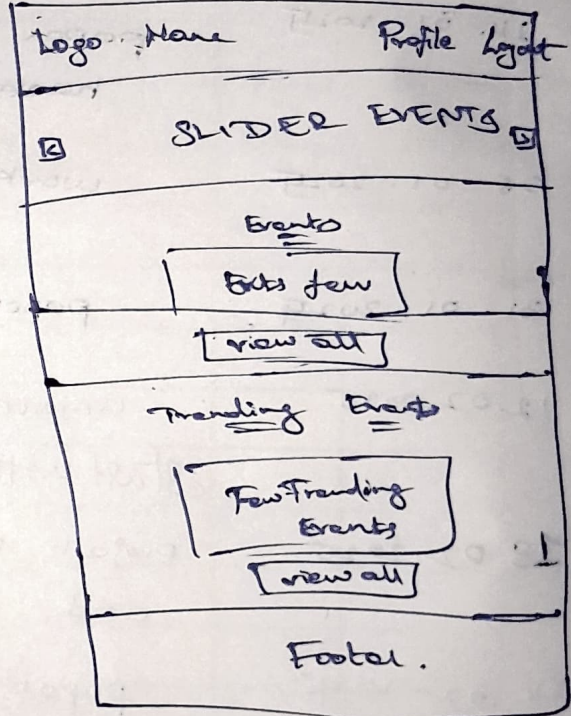 Logo Name Profile Logout
< SLIDER EVENTS >
Events
few
view all
Trending Events
Few Trending
Events
view all
Footer.